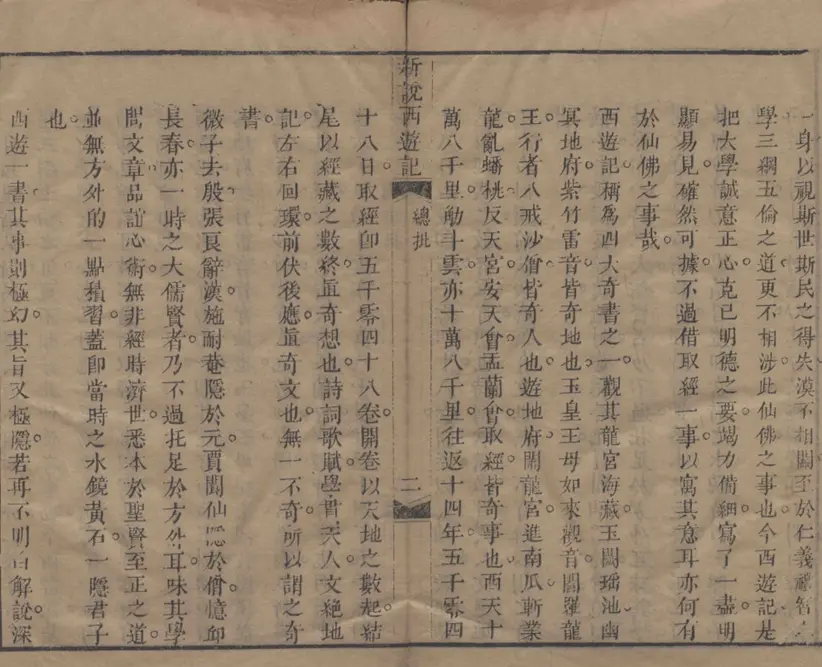 一身以視斯世斯民之得失漠不相關至於仁義禮智之
學三綱五倫之道更不相涉此仙佛之事也今西遊記是
把大學誠意正心克己明德之要竭力備細寫了一盡明
顯易見確然可據不過借取經一事以寓其意耳亦何有
於仙佛之事哉
西遊記稱爲四大奇書之一觀其龍宮海藏玉闕瑤池幽
冥地府紫竹雷音皆奇地也玉皇王母如來觀音閻羅龍
王行者八戒沙僧皆奇人也遊地府鬧龍宮進南瓜斬業
龍亂蟠桃反天宮安天會盂蘭會取經皆奇事也西天十
萬八千里觔斗雲亦十萬八千里往返十四年五千零四
新說西遊記
總批
二
十八日取經卽五千零四十八卷開卷以天地之數起結
尾以經藏之數終眞奇想也詩詞歌賦學貫天人文絕地
記左右回環前伏後應眞奇文也無一不奇所以謂之奇
書
微子去殷張良辭漢施耐菴隱於元賈閬仙隱於僧憶邱
長春亦一時之大儒賢者乃不過托足於方外耳味其學
問文章品誼心術無非經時濟世悉本於聖賢至正之道
並無方外的一點積習蓋卽當時之水鏡黃石一隱君子
也
西遊一書其事則極幻其旨又極隱若再不明白解說深